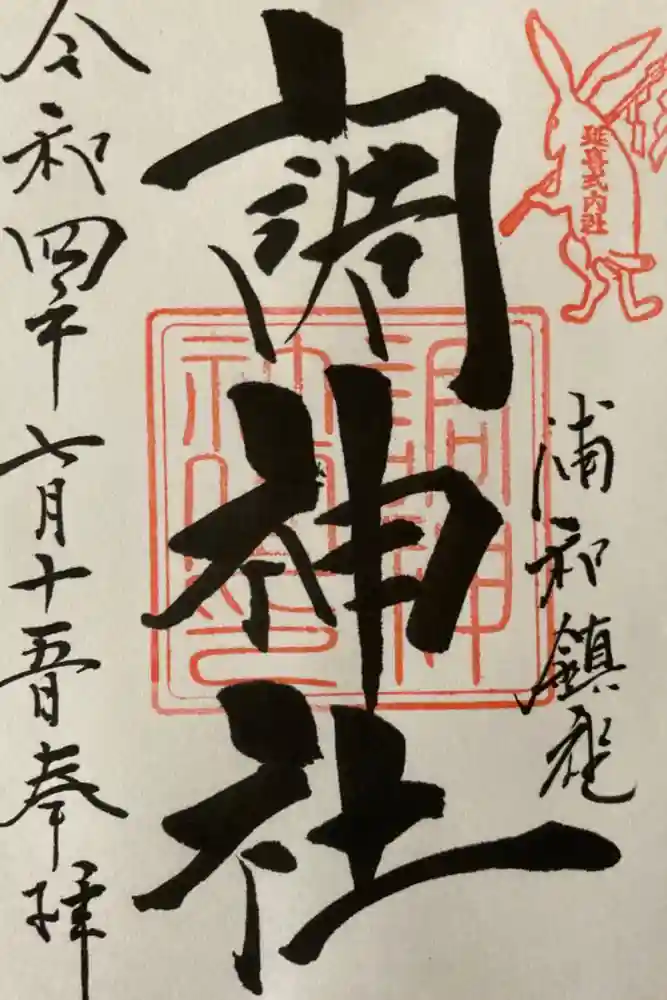 延喜式内社
浦和鎮座
調神社
令和四年七月十五日奉拝